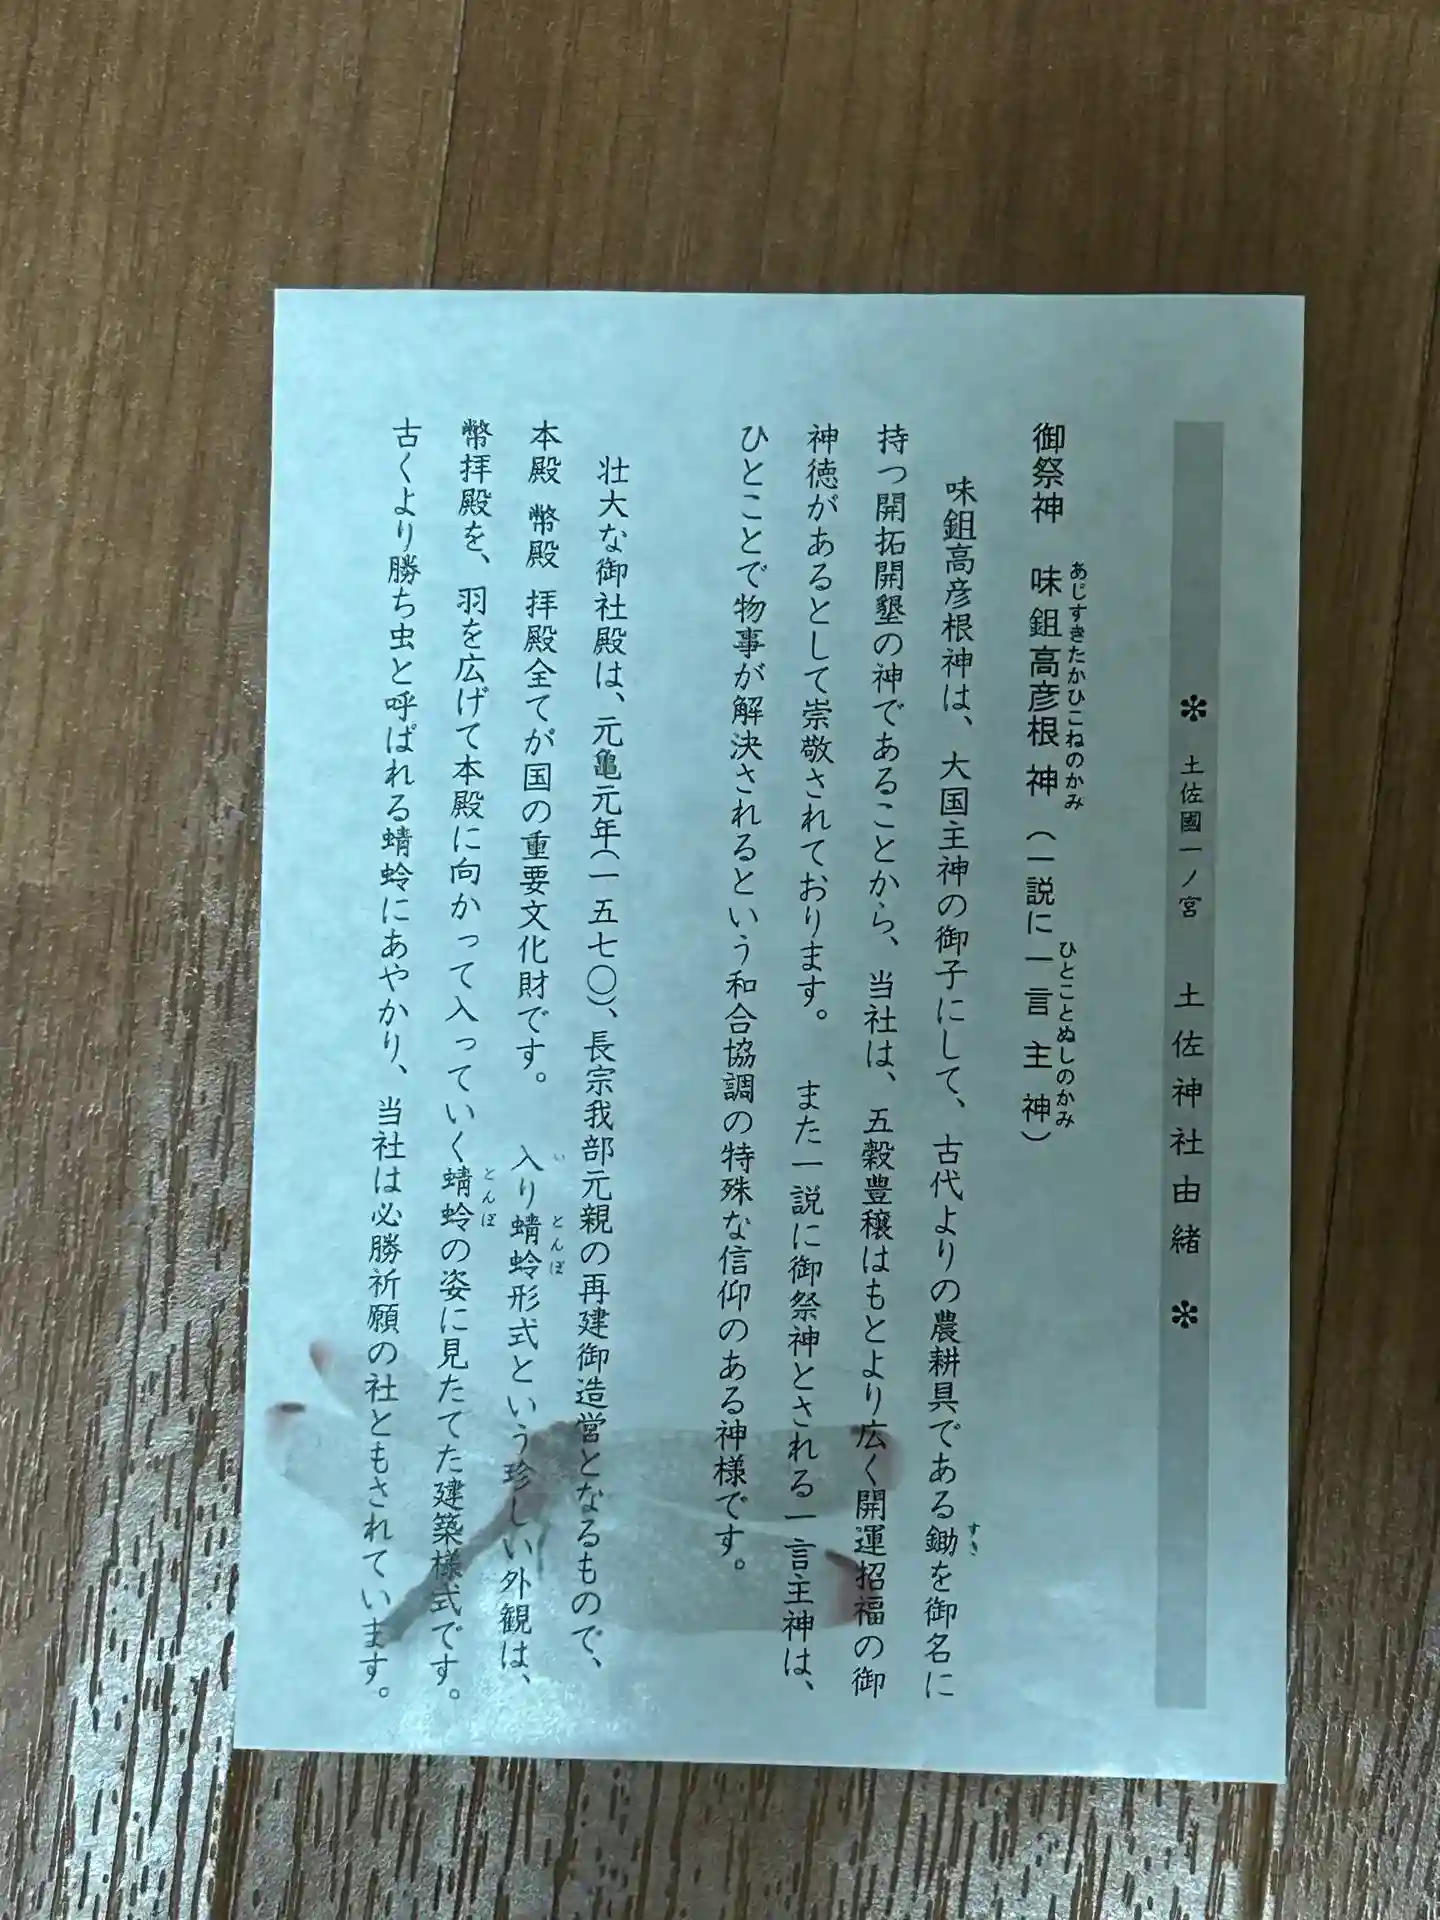 ✽ 土佐國一ノ宮 土佐神社由緒 ✽
御祭神 味鉏高彦根神(一説に一言主神)
あじすきたかひこねのかみ
ひとことぬしのかみ
味鉏高彦根神は、大国主神の御子にして、古代よりの農耕具である鋤を御名に
すき
持つ開拓開墾の神であることから、当社は、五穀豊穣はもとより広く開運招福の御
神徳があるとして崇敬されております。 また一説に御祭神とされる一言主神は、
ひとことで物事が解決されるという和合協調の特殊な信仰のある神様です。
壮大な御社殿は、元亀元年(一五七〇)、長宗我部元親の再建御造営となるもので、
本殿 幣殿 拝殿全てが国の重要文化財です。 入り蜻蛉形式という珍しい外観は、
い とんぼ
幣拝殿を、羽を広げて本殿に向かって入っていく蜻蛉の姿に見たてた建築様式です。
とんぼ
古くより勝ち虫と呼ばれる蜻蛉にあやかり、当社は必勝祈願の社ともされています。